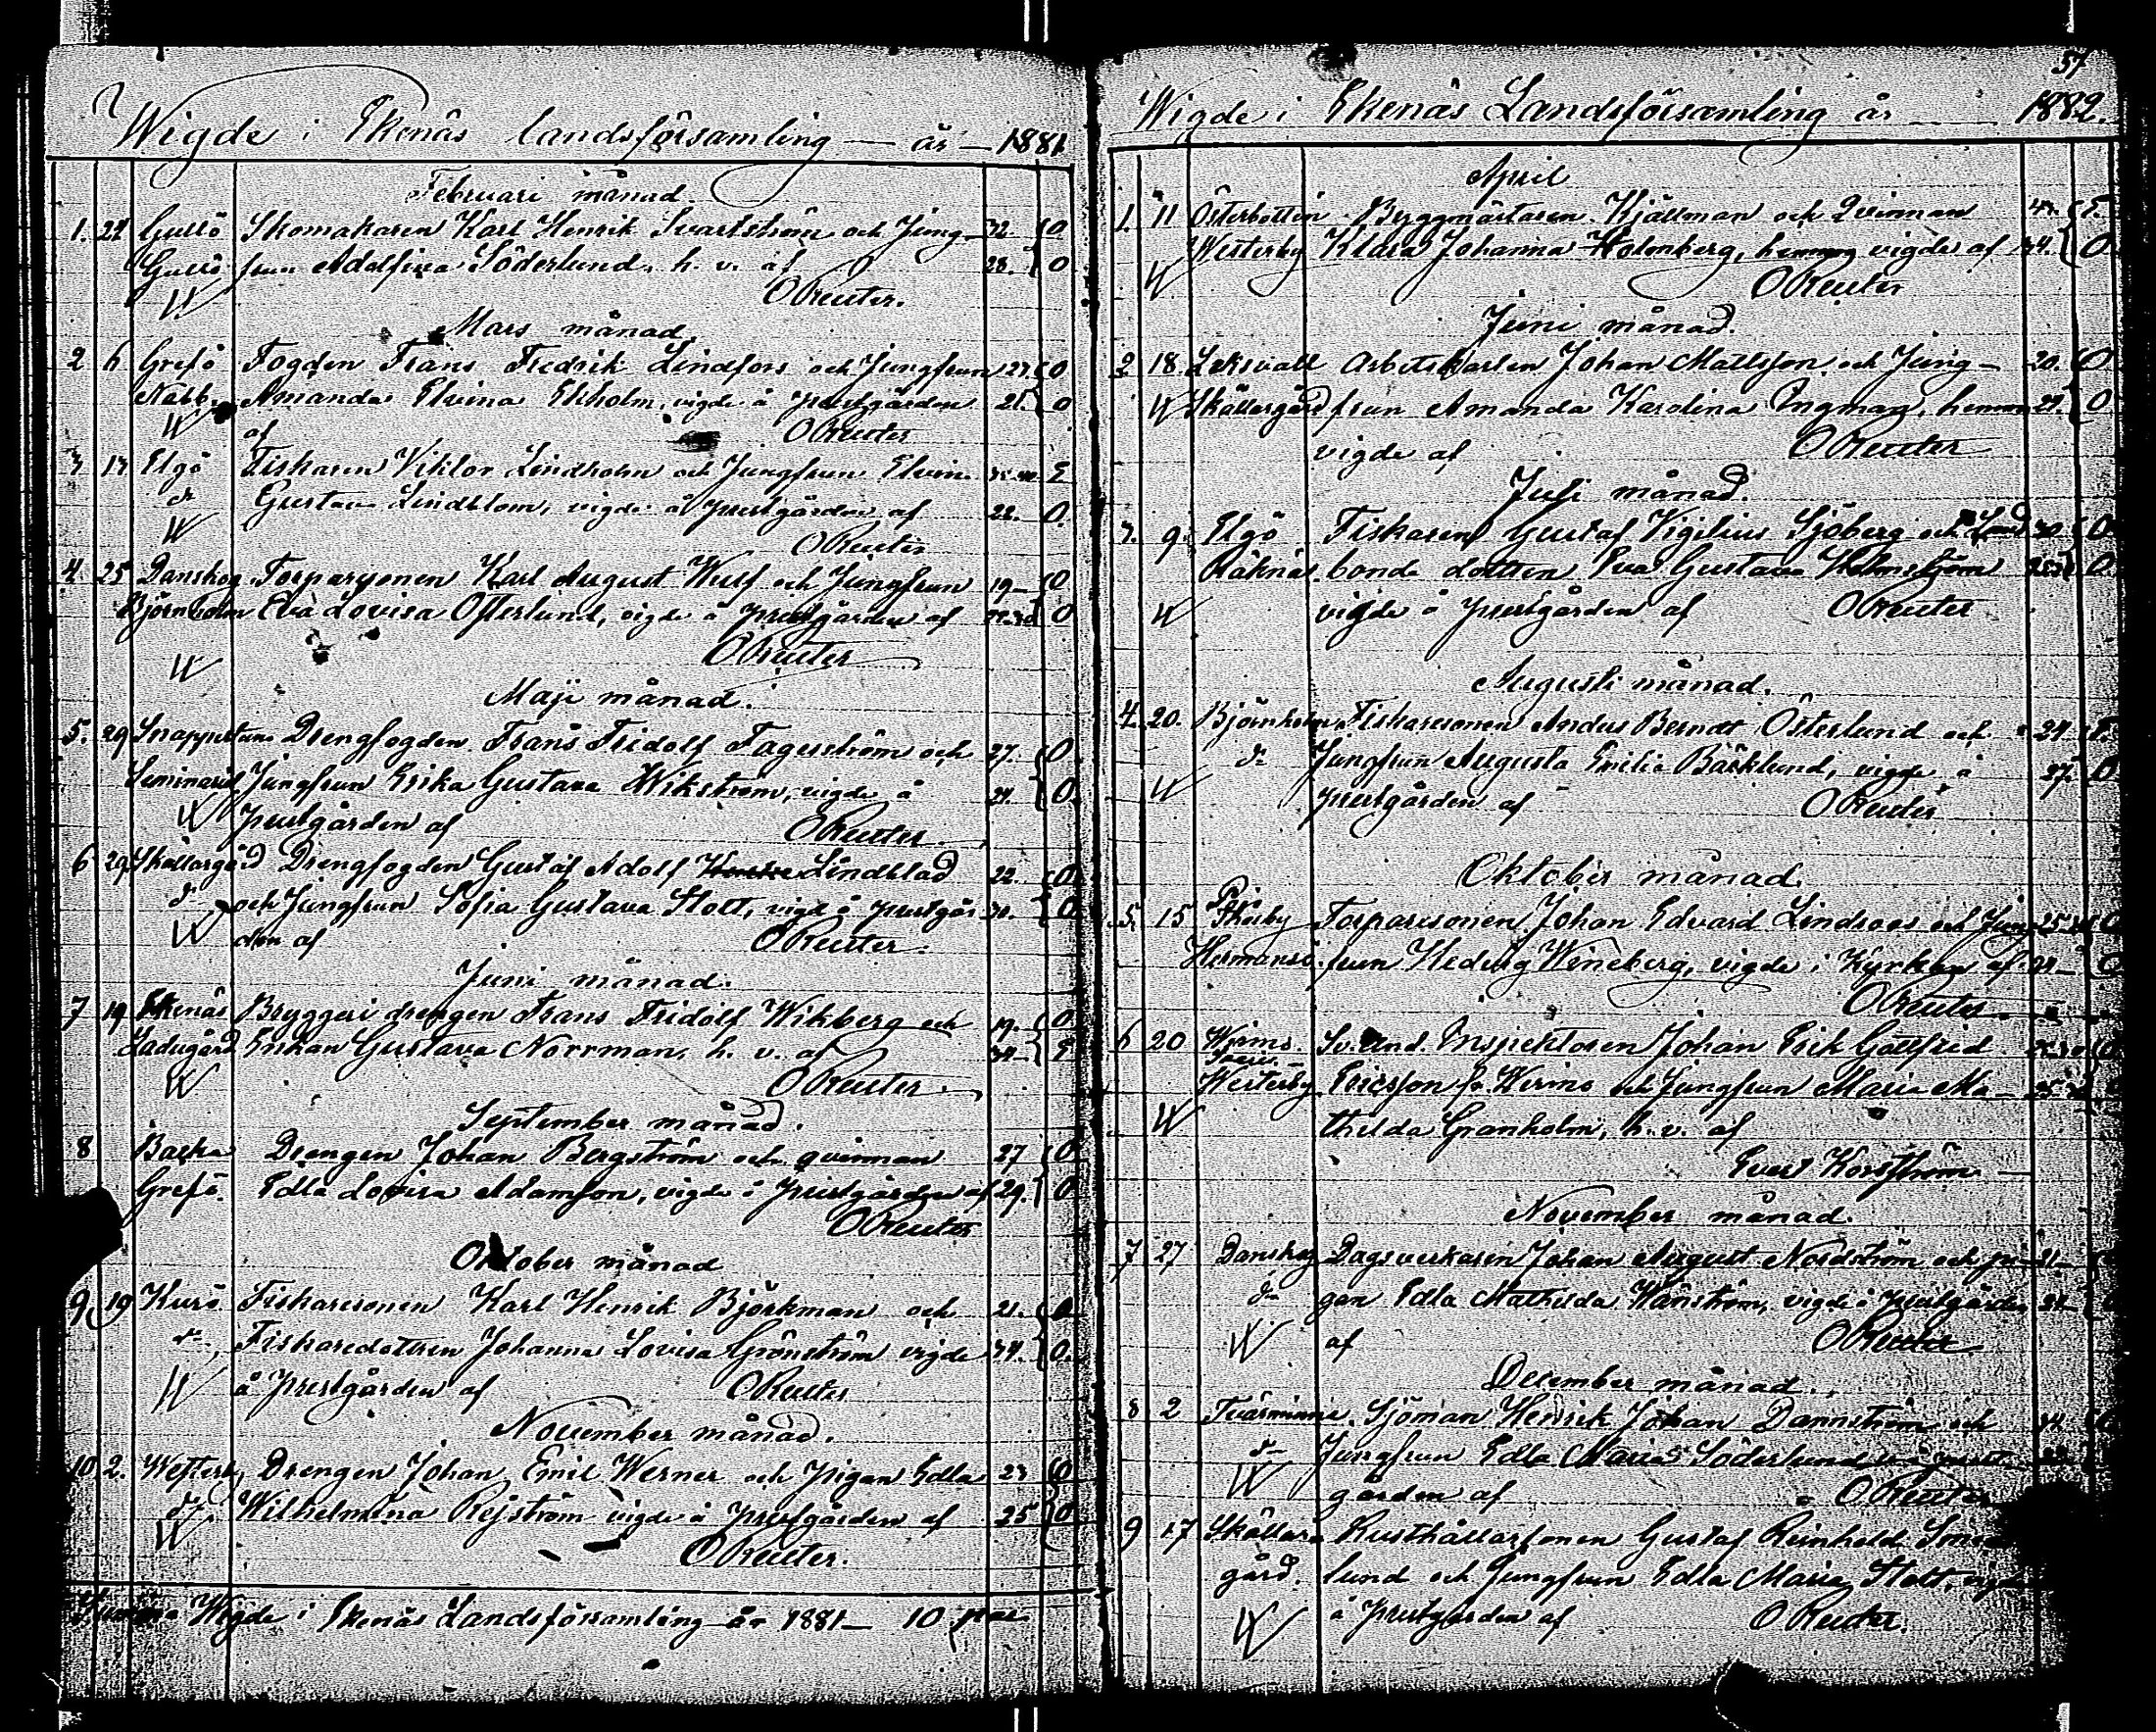 Wigde i Ekenäs landsförsamling — år — 1881
Februari månad.
1. 22 Gullö Skomakaren Karl Henrik Svartström och Jung- 32. O
Gullö frun Adolfina Söderlund, h. v. af 28. O
W O Reuter.
Mars månad.
2 6 Grefö Fogden Frans Fredrik Lindfors och Jungfrun 27. O
Nabb. Amanda Elvina Ekholm, vigde å prestgården 21. O
W af O Reuter
3 13 Elgö Fiskaren Viktor Lindholm och Jungfrun Elvin. E
d:o Gustava Lindblom, vigde å prestgården af 22. O.
W O Reuter
4. 25 Danskog Torparsonen Karl August Wulf och Jungfrun 19— O
Björnholm Eva Lovisa Österlund, vigde å prestgården af O
W O Reuter
Maji månad.
5. 29 Snappertuna Drengfogden Frans Fridolf Fagerström och 27. O
Seminariet Jungfrun Erika Gustava Wikström, vigde å 24. O
W prestgården af O Reuter.
6 29 Skållargård Drengfogden Gustaf Adolf Lindblad 22. O
d:o och Jungfrun Sofia Gustava Stolt, vigd å prestgår O
W den af O Reuter.
Juni månad.
7 19 Ekenäs Bryggeri drengen Frans Fridolf Wikberg och 19. O
Ladugård Enkan Gustava Norrman, h. v. af 34— E
W O Reuter.
September månad.
8 Backa Drengen Johan Bergström och qvinnan 27 O
Grefö. Edla Lovisa Adamsson, vigde å prestgården af 29. O
O Reuter
Oktober månad
9 19 Kurö Fiskaresonen Karl Henrik Björkman och 21. O
d:o Fiskaredottren Johanna Lovisa Grönström vigde 34. O.
W å prestgården af O Reuter
November månad.
10 2. Westerby Drengen Johan Emil Werner och pigan Edla 23 O
d:o Wilhelmina Rejström vigde å prestgården af 25 O
W O Reuter.
Summa Wigde i Ekenäs Landsförsamling år 1881— 10 par
57
Wigde i Ekenäs Landsförsamling år — 1882.
April
1. 11 Österbotten Byggmästaren Kjällman och Qvinnan E.
Westerby Klara Johanna Holmberg, hemma vigde af 34. O
W O Reuter
Juni månad.
2 18. Leksvall Arbetskarlen Johan Mattsson och Jung- 20. O
W Skållargård frun Amanda Karolina Ingman, hemma 29. O
vigde af O Reuter
Juli månad.
3. 9. Elgö Fiskaren Gustaf Vigilius Sjöberg och 30. O.
bonde dottren Eva Gustava Holmström O
W vigde å prestgården af O Reuter
Augusti månad.
4. 20. Björnholm Fiskaresonen Anders Berndt Österlund och 24 E.
d:o Jungfrun Augusta Emilia Bäcklund, vigde å 27. O
W prestgården af O Reuter
Oktober månad.
5. 15 Torparesonen Johan Edvard Lindroos och Jung- O
Hermansö frun Hedvig Wineberg, vigde i Kyrkan af O
O Reuter
6 20 Wermo Sv. und. Inspektoren Johan Erik Gottfried O
Westerby Ericsson fr. Wermo och Jungfrun Maria Ma-
W thilda Granholm, h. v. af
Evert Korsström
November månad.
7 27 Danskog Dagsverkaren Johan August Nordström och pi- 21—
d:o gan Edla Mathilda Wänström, vigde å prestgården
W af O Reuter
December månad.
8 2 Tvärminne Sjöman Henrik Johan Dannström och
d:o Jungfrun Edla Maria Söderlund v. å prest
W gården af O Reuter
9 17 Skållar- Rusthållarsonen Gustaf Reinhold
gård. lund och Jungfrun Edla Maria Stolt,
W å prestgården af O Reuter.